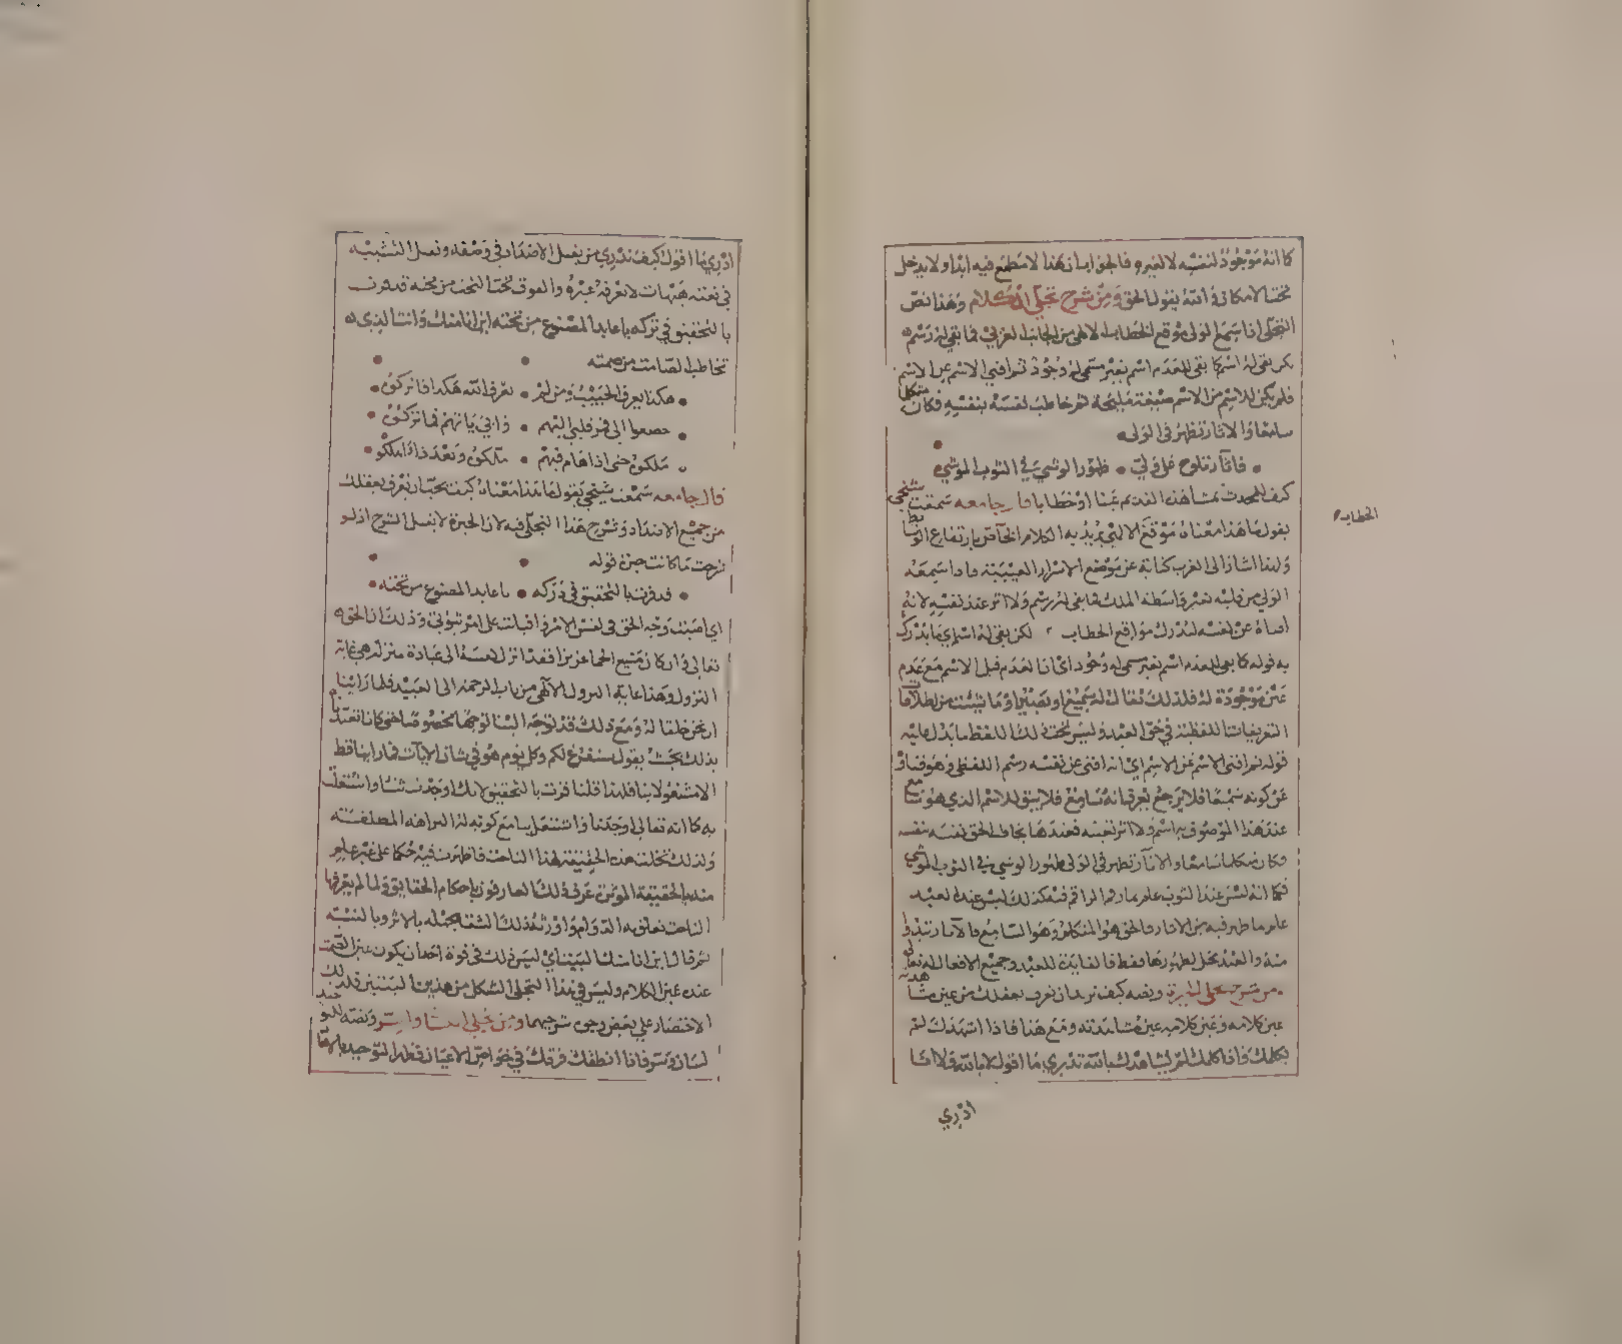 كما انه موجود لنفسه لا لغيره فالحق ايمان هذا لا مطمع فيه ابدا ولا يدخل
تحت الامكان والله يقول الحق ومن شرح تجلي الكلام وهذا نص
التجلي اذا سمع الولي موقع الخطاب الالهي من الجانب الغربي فما بقي له رسم
لكن بقي له اسم كما بقي للعدم اسم بغير مسمى له وجود ثم افني الاسم عن الاسم
فلم يكن للاسم من الاسم صيغة مليحة ثم خاطب نفسه بنفسه فكان متكلما
سامعا والاثار تظهر في الولي
فاثار تلوح على ولي • ظهور الوشي في الثوب الموشي
كيف للمحدث بمشاهدة القديم عينا او خطابا قال جامعه سمعت شيخي
يقول ما هذا معناه موقع الالهي يريد به الكلام الخاص بارتفاع الوسايط
ولهذا اشار الى الغرب كناية عن موضع الاسرار الغيبية فاذا سمعه
الولي من قلبه بغير واسطة الملك فما بقي له رسم ولا اثر عند نفسه لانه
افناه عن نفسه لدرك مواقع الخطاب لكن بقي له اسم اي ما يدرك
به قوله كما بقي للعدم اسم بغير مسمى له وجود اي ان العدم قبل الاسم مع عدم
عين موجودة له فلذلك يقال له سميع او بصير او ما شئت من اطلاقات
التعريفات اللفظية في حق العبد وليس تحت ذلك اللفظ ما يدل عليه
قوله ثم افني الاسم عن الاسم اي انه افني عن نفسه رسم اللفظي وهو فناؤه
عن كونه سميعا فلا يرجع يعرف انه سامع فلا يبق للاسم الذي هو سامع
عند هذا الموصوف به اسم ولا اثر لنفسه فعندها يخاطب الحق نفسه بنفسه
وكان متكلما سامعا والاثار تظهر في الولي ظهور الوشي في الثوب الموشي
فكما انه ليس عند الثوب علم بما رقم الراقم فيه كذلك ليس عند العبد
علم بما ظهر فيه من الاثار فالحق هو المتكلم وهو السامع فالاثار تبدو
منه والعبد محل لظهورها فقط فالفايدة للعبد وجميع الافعال لله تعالى
ومن شرح تجلي الحيرة ونصه كيف تريد ان تعرف بعقلك من عين مشاهدته
عين كلامه وعين كلامه عين مشاهدته ومع هنا فاذا اشهدك لم
يكلمك واذا كلمك لم يشاهدك بالله تدري ما اقول لا بالله ولا انا
ادري
الخطاب
ادري ما اقول كيف يدري من يقبل الاضداد في وصفه ويقبل التشبيه
في نعته هيهات لا يعرفه غيره والفوق تحت التحت من تحته قد فزت
بالتحقيق في تركه يا عابد المصنوع من نحته اين انا منك وانت الذي
تخاطب الصامت من صمته
هكذا يعرف الحبيب ومن لم • يعرف الله هكذا فاتركن
خضعوا الي فمر قلبي اليهم • وابي يانهم فما تركن
ملكون حتى اذا هام فيهم • ملكون وبعد ذاك املكو
قال جامعه سمعت شيخي يقول ما هذا معناه كيف يحيد ان تعرف بعقلك
من جميع الاضداد وشرح هذا التجلي فيه لان الحيرة لا تقبل الشرح اذ لو
شرحت ما كانت حيرة قوله
قد فزت بالتحقيق في دركه • يا عابد المصنوع من نحته
اي اصبت وجه الحق في نفس الامر واقبلت على امر ثبوتي وذلك ان الحق
تعالى وان كان منيع الحما عزيزا فقد انزل نفسه الى عبادة منزلة هي غاية
النزول وهذا غاية النزول الالهي من باب الرحمة الى العبيد فلما راينا
ان نحن خلقا له ومع ذلك قد توجه الينا توجها مخصوصا حتى كانا نعبد
بذلك بحيث يقول سنفرغ لكم وكل يوم هو في شان الايات فما راينا قط
الا مشغولا بنا فلهذا قلنا فزت بالتحقيق لانك اوجدت شيا واشتغلت
به كما انه تعالى اوجدنا واشتغل بنا مع كونه له النزاهة المطلقة
ولذلك تخلت هذه الحقيقة لهذا الناحت فاظهرت فيه حكما على غير علم
منه بالحقيقة الموثرة عرف ذلك العارفون باحكام الحقايق ولما لم يعرفها
الناحت تعلق به الذم واورثه ذلك الشقا لجهله بالاثر وبالنسبة
ثم قال اين انا منك البيت اي ليس ذلك في قوة احد ان يكون عين الصمت
عنده عين الكلام وليس في هذا التجلي اشكل من هذين البيتين فلذلك
الاختصار على بعض وجوه شرحهما ومن تجلي اللسان والسر ونصه للتوحيد
لسان وسر فاذا انطقك فرقك في خواص الاعيان فظهر التوحيد بالاقا